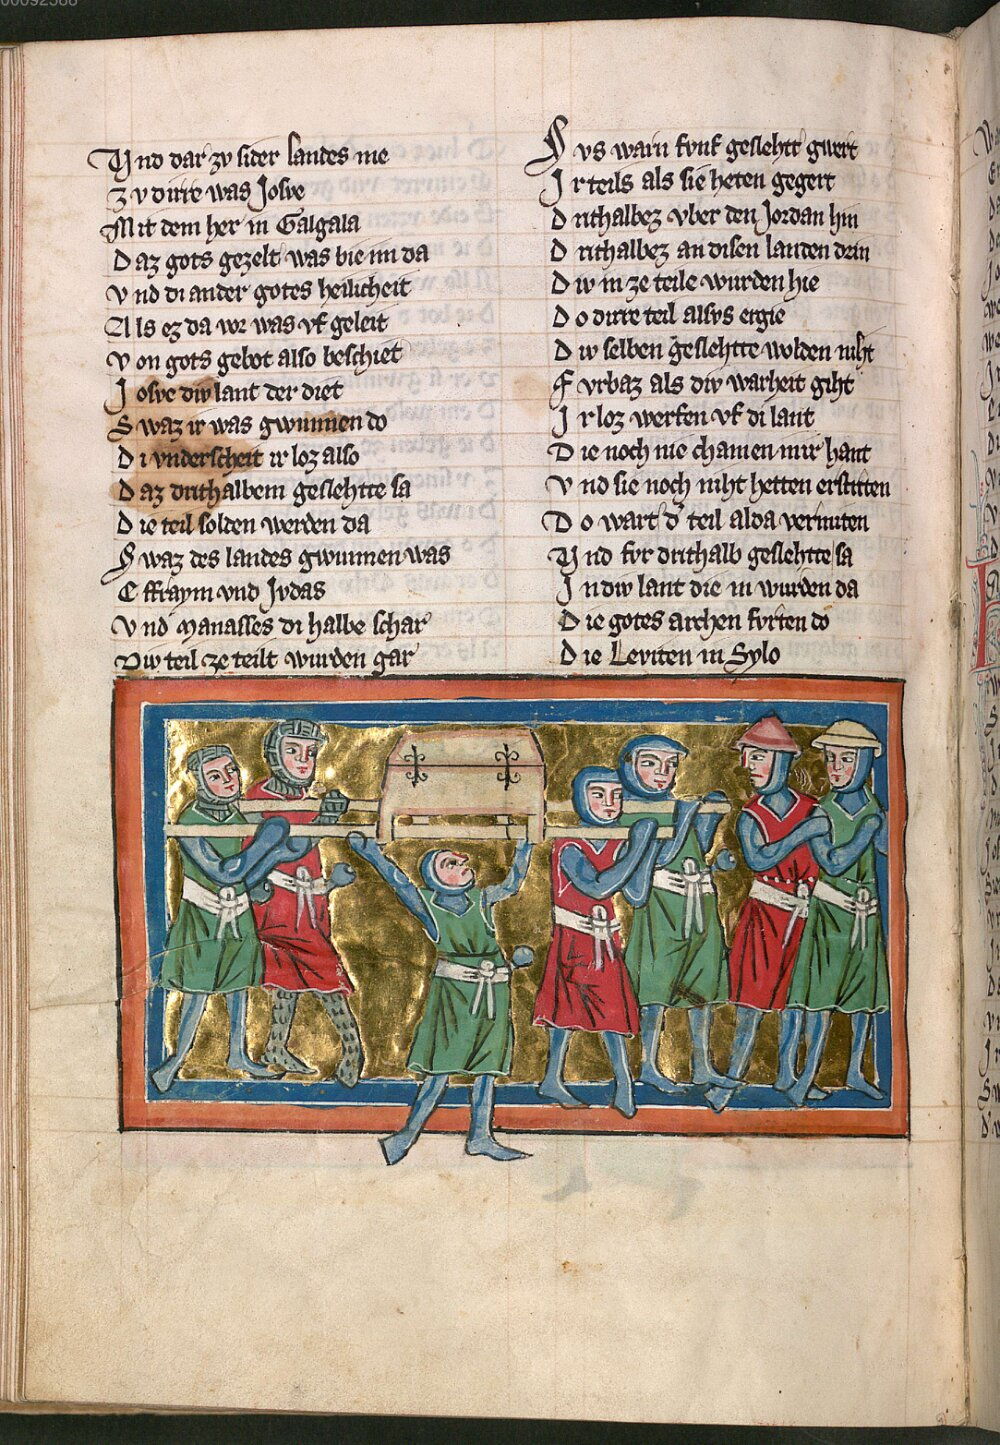 00092588
Vnd dar zv sider landes nie
Zv dirre was Josve
Mit dem her in Galgala
Daz gots gezelt was bie im da
Vnd di ander gotes heilicheit
Als ez da vor was vf geleit
Von gots gebot also beschiet
Josve div lant der diet
Swaz ir was gwunnen do
Di vnderscheit ir loz also
Daz drithalbem geslehtte sa
Die teil solden werden da
Swaz des landes gwunnen was
Effraym vnd Jvdas
Vnd Manasses di halbe schar
Div teil ze teilt wurden gar
Svs warn fvnf geslehtt gwert
Ir teils als sie heten gegert
Drithalbez vber den Jordan hin
Drithalbez an disen landen drin
Div in ze teile wurden hie
Do dirre teil alsvs ergie
Div selben geslehtte wolden niht
Fvrbaz als div warheit giht
Ir loz werfen vf di lant
Die noch nie chamen in ir hant
Vnd sie noch niht hetten erstriten
Do wart d' teil alda vermiten
Vnd fvr drithalb geslehtte sa
In div lant die in wurden da
Die gotes archen fvrten do
Die Leviten in Sylo